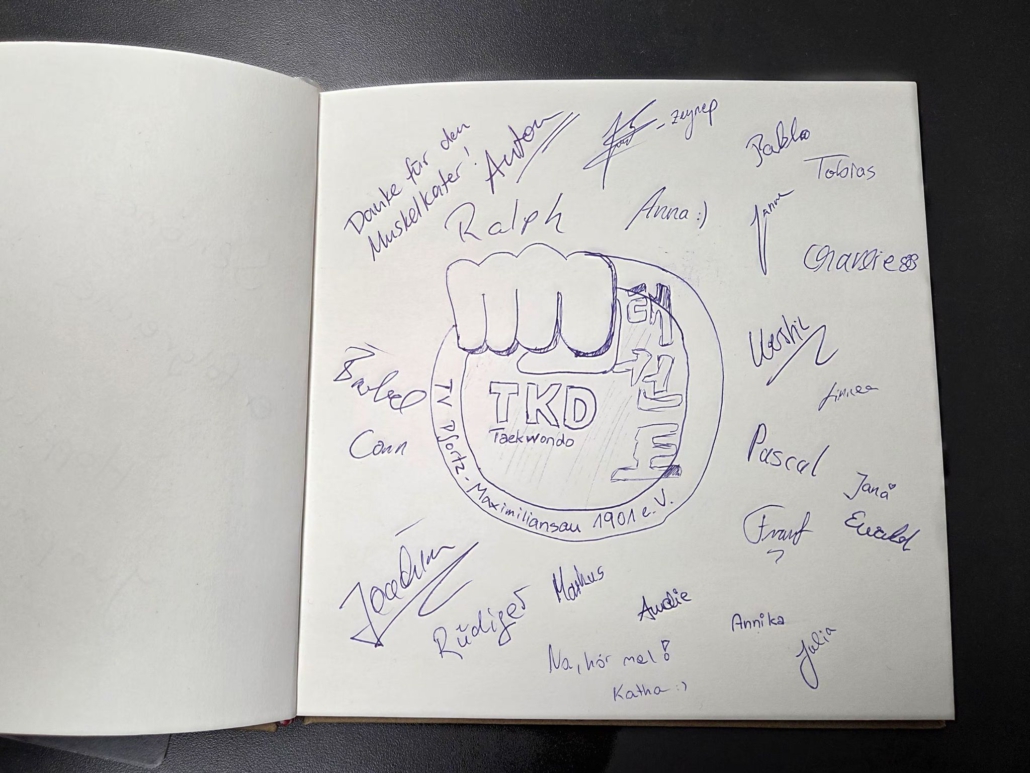 Danke für den
Muskelkater!
Anton
Zeynep
Pablo
Tobias
Ralph
Anna :)
Janne
Charlie
태
권
도
TKD
Taekwondo
TV Pfortz-Maximiliansau 1901 e.V.
Bärbel
Conn
Kershi
Linnea
Pascal
Jana
Ewald
Joachim
Rüdiger
Markus
Amelie
Annika
Julia
Na, hör mal!
Katha :)